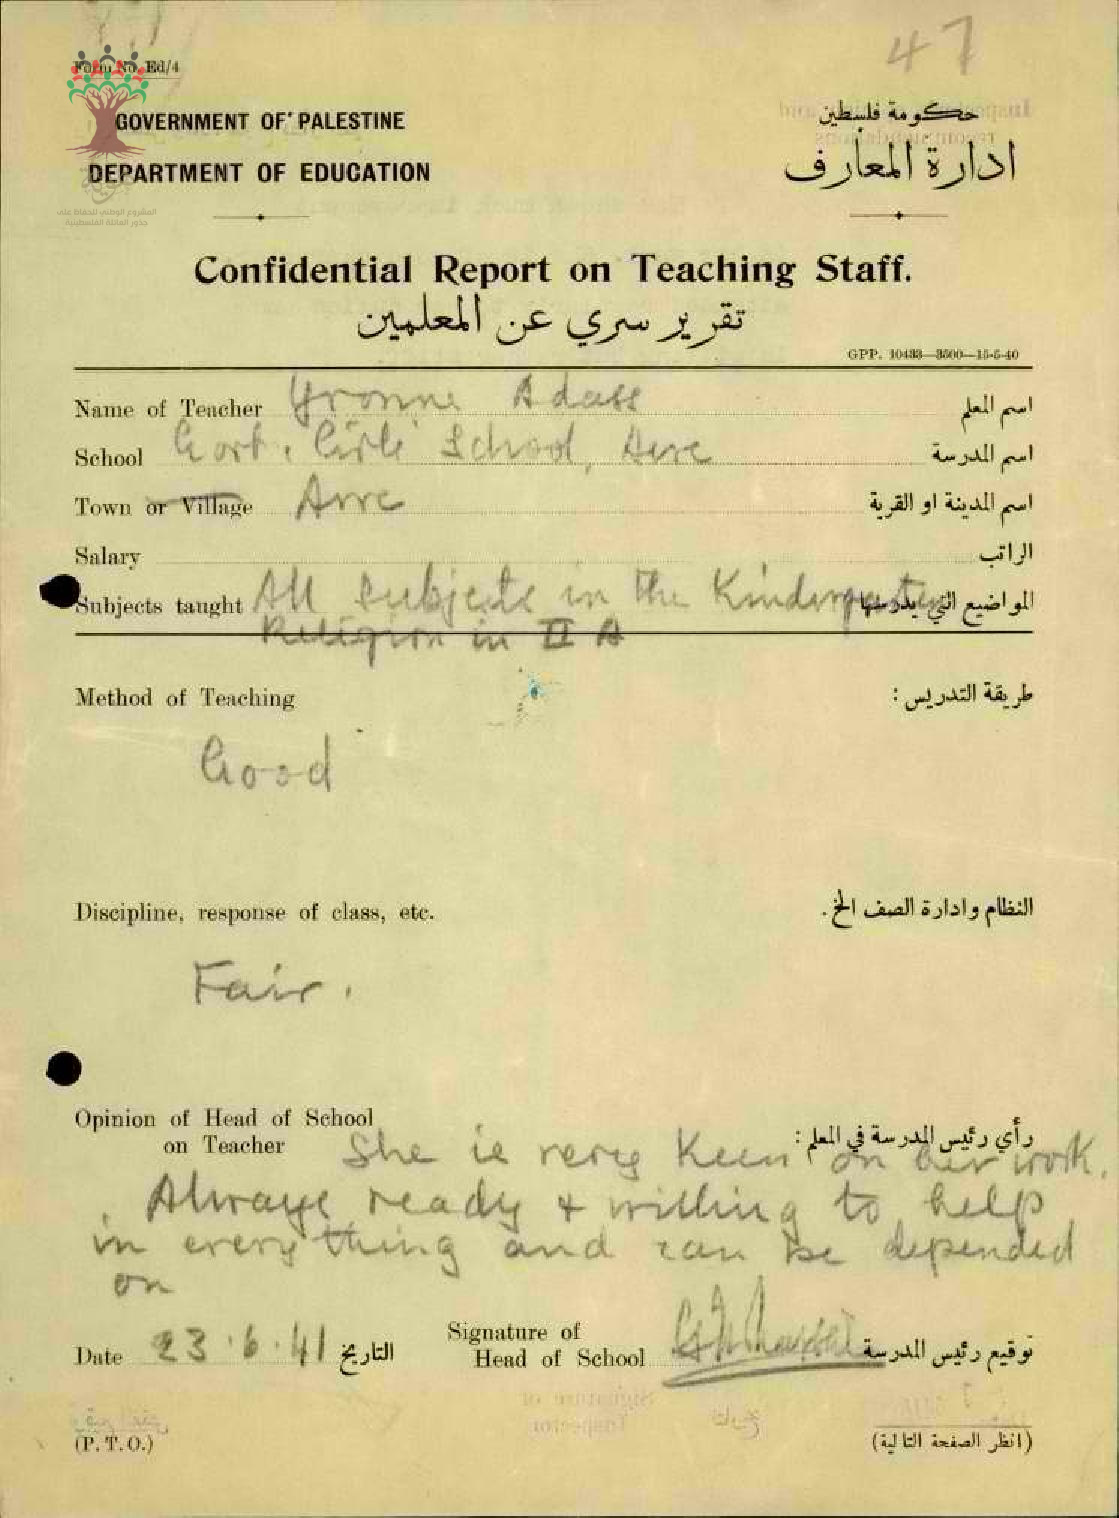 47
Form No. Ed/4
GOVERNMENT OF PALESTINE
حكومة فلسطين
DEPARTMENT OF EDUCATION
ادارة المعارف
المشروع الوطني للحفاظ على
جذور العائلة الفلسطينية
Confidential Report on Teaching Staff.
تقرير سري عن المعلمين
GPP. 10433—3500—15-5-40
Name of Teacher Yvonne Adass اسم المعلم
School Govt. Girls' School, Acre اسم المدرسة
Town or Village Acre اسم المدينة او القرية
Salary الراتب
Subjects taught All Subjects in the Kindergarten المواضيع التي يدرسها
Religion in II A
Method of Teaching طريقة التدريس :
Good
Discipline, response of class, etc. النظام وادارة الصف الخ.
Fair.
Opinion of Head of School
on Teacher رأي رئيس المدرسة في المعلم :
She is very keen on her work.
Always ready & willing to help
in everything and can be depended
on
Date 23.6.41 التاريخ
Signature of
Head of School توقيع رئيس المدرسة
(P. T. O.) (انظر الصفحة التالية)